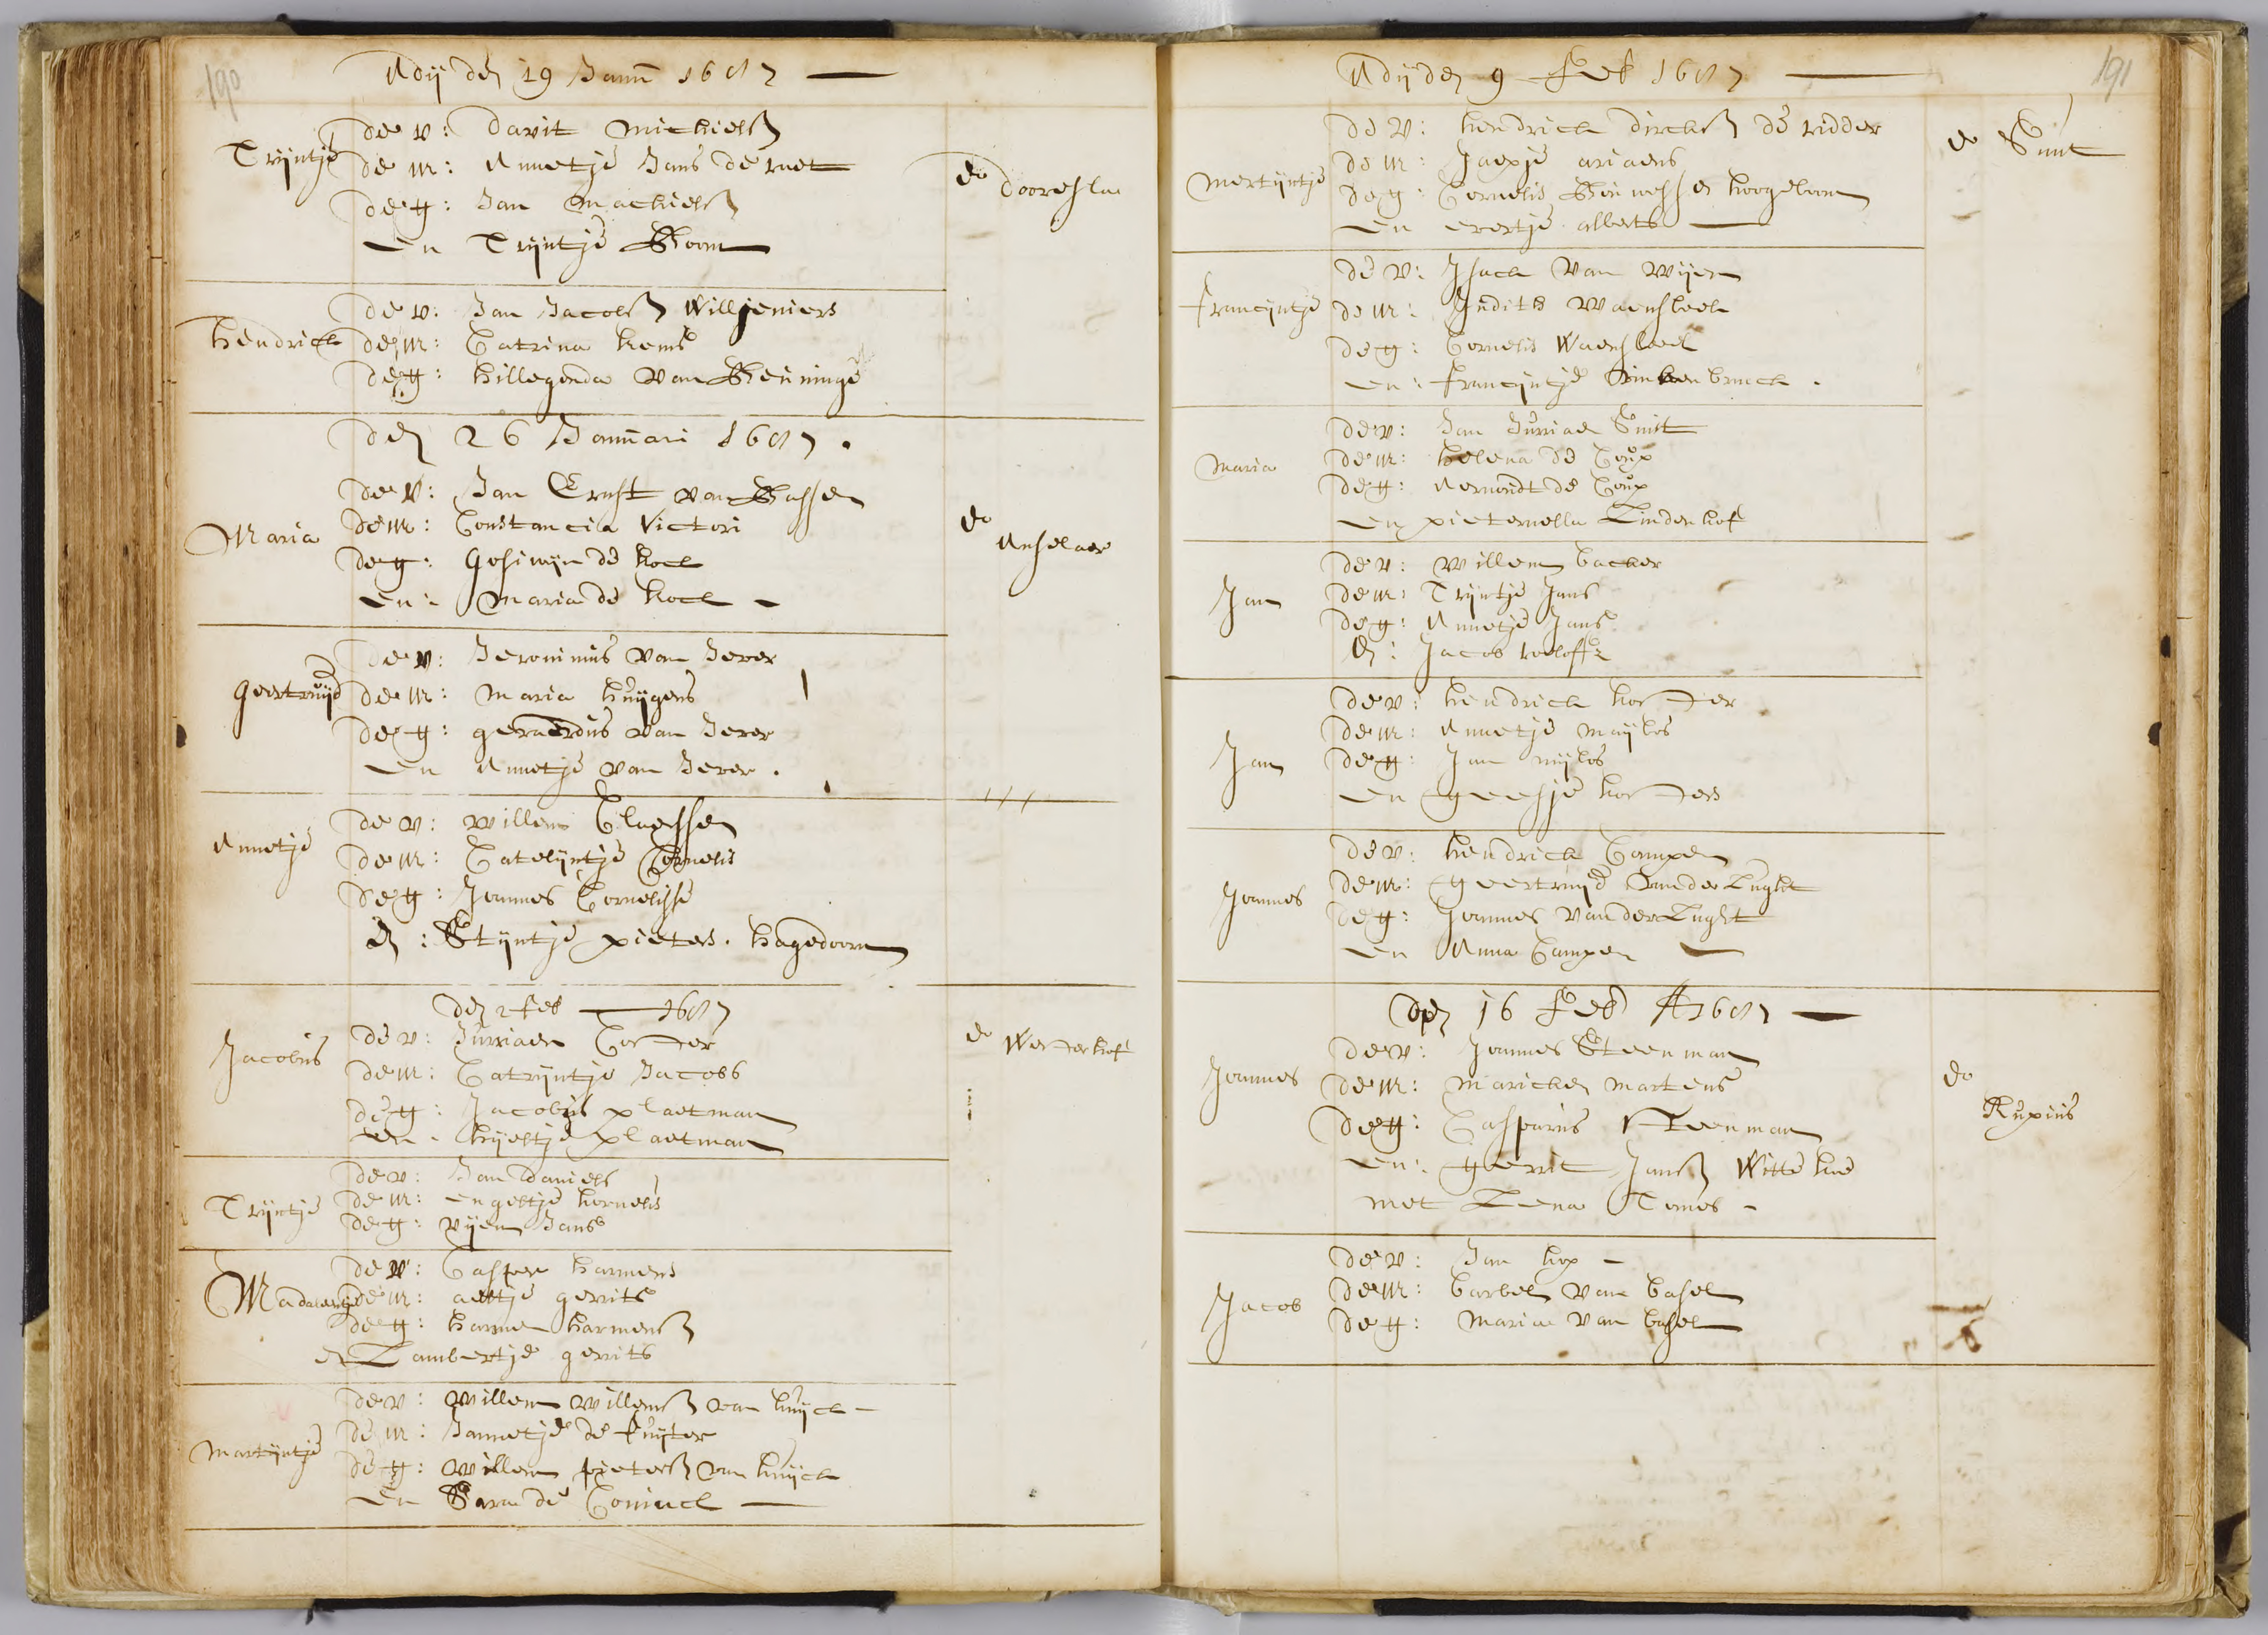 190
Adij den 19 Janu 1687
Trijntje
de v: Davit Michielsz
de m: Annetje Jans de
de g: Jan Machielsz
en Trijntje Boom
do
Hendrick
de v: Jan Jacobsz Willjeniers
de m: Catrina
de g: Hillegonda van Beuninge
den 26 Januari 1687.
Maria
de v: Jan Ernst van Bassen
de m: Constancia Victori
de g: Gosiwijn de Kock
en: Maria de Kock
do
Anselaer
Geertruijd
de v: Jeronimus van Jever
de m: Maria Huijgens
de g: gerardus van Jever
en Annetje van Jever.
Annetje
de v: Willem Claessen
de m: Catelijntje Cornelis
de g: Joannes Cornelisse
en: Stijntje pieters. Hagedoorn
den 2 feb 1687
Jacobus
de v: Jurriaen
de m: Catrijntje Jacobs
de g: Jacobus plaetman
en. plaetman
do
Trijntje
de v: Jan Daniels
de m: engeltje kornelis
de g: Jans
Madalentje
de v: Casper Harmens
de m: aeltje gerrits
de g: Harmen Harmensz
en Lambertje gerrits
Martijntje
de v: Willem Willemsz van Kuijck
de m: Jannetje de
de g: Willem pietersz van Kuijck
en Sara de Coninck
191
Adij den 9 Feb 1687
Mertijntje
de v: Hendrick Dircksz de ridder
de m: Jaepje ariaens
de g: Cornelis hoogeboom
en evertje alberts
do
Smit
francijntje
de v: Isack van Wijen
de m: Judith
de g: Cornelis
en: francijntje
Maria
de v: Jan Jurriae Smit
de m: Helena de Coup
de g: Aernondt de Coup
en pieternella Lindenhof
Jan
de v: Willem backer
de m: Trijntje Jans
de g: Annetje Jans
en: Jacob roeloffz
Jan
de v: Hendrick
de m: Annetje
de g: Jan
en geesje
Joannes
de v: Hendrick Campen
de m: Geertruijd van der Lught
de g: Joannes van der Lught
en Anna Campen
den 16 Feb Ao 1687
Joannes
de v: Joannes Steenman
de m: Maricken Martens
de g: Casparus Steenman
en: gerrit Jansz Witte
met Lena
do
Rupius
Jacob
de v: Jan Kop
de m: Barbel van basel
de g: Maria van basel